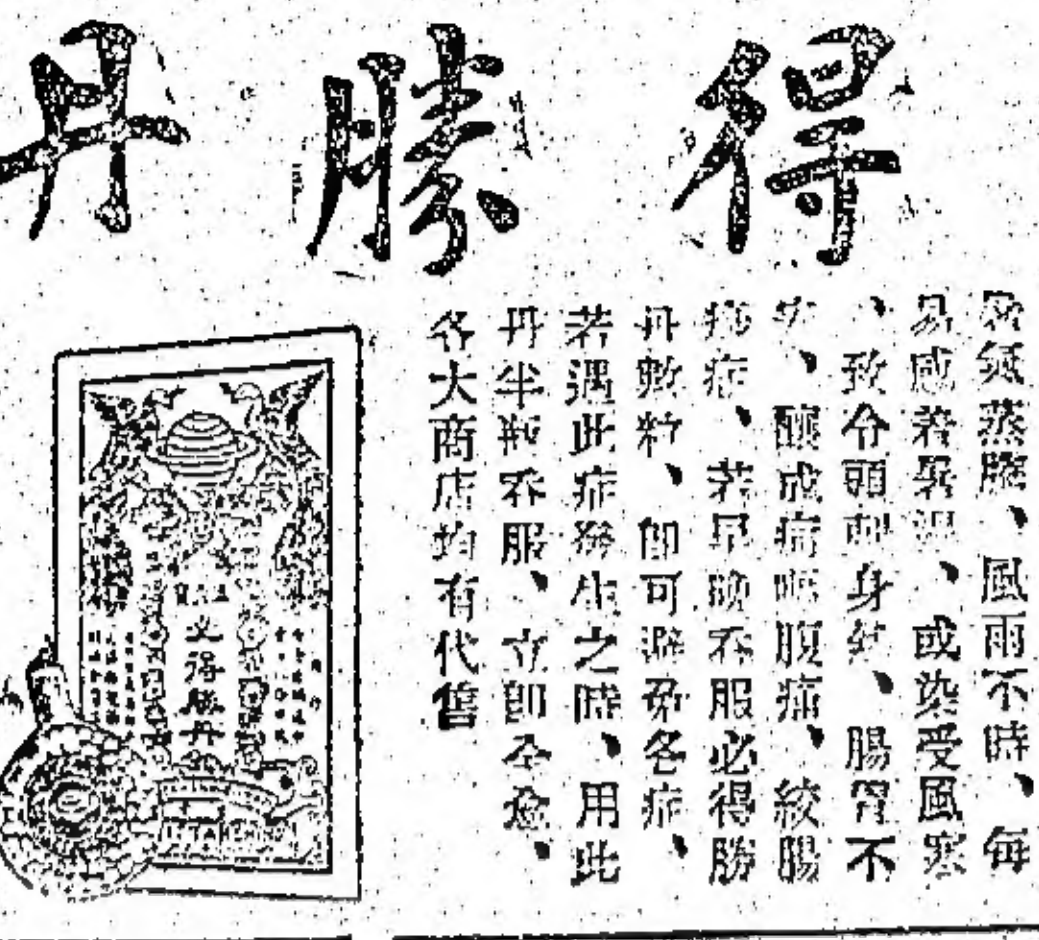 得勝丹
暑氣蒸騰、風雨不時、每
易感着暑濕、或染受風寒
、致令頭刺身灼、腸胃不
安、釀成痾嘔腹痛、絞腸
痧症、若早晚吞服必得勝
丹數粒、卽可避免各症、
若遇此症發生之時、用此
丹半瓶吞服、立卽全愈、
各大商店均有代售
必得勝丹